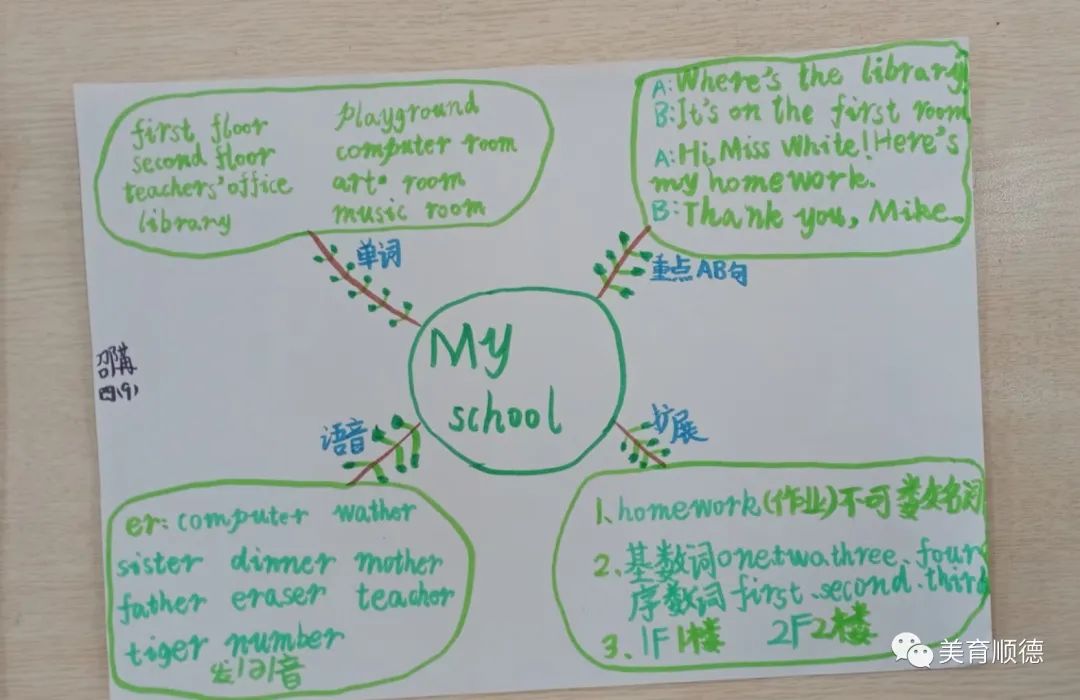 first floor
second floor
teachers' office
library
playground
computer room
art room
music room
单词
A: Where's the library
B: It's on the first room
A: Hi, Miss White! Here's
my homework.
B: Thank you, Mike.
重点AB句
My
school
四(9)
语音
er: computer wather
sister dinner mother
father eraser teachor
tiger number
发/ə/音
扩展
1、homework(作业)不可数名词
2、基数词one two three、four
序数词first、second、third
3、1F 1楼 2F 2楼
美育顺德